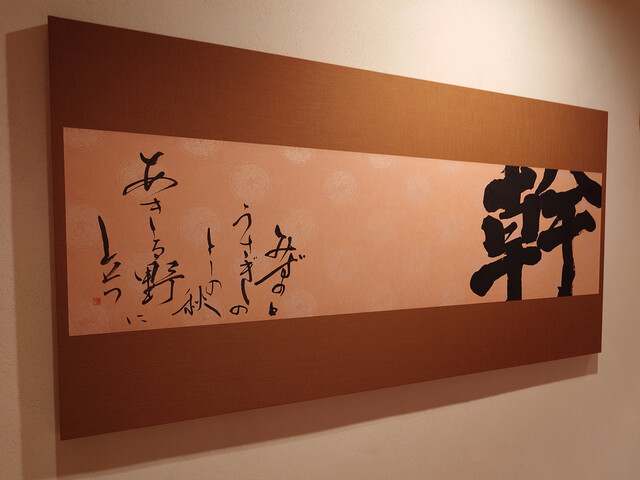 幹
みずのと
うさぎの
としの秋
あきる野に